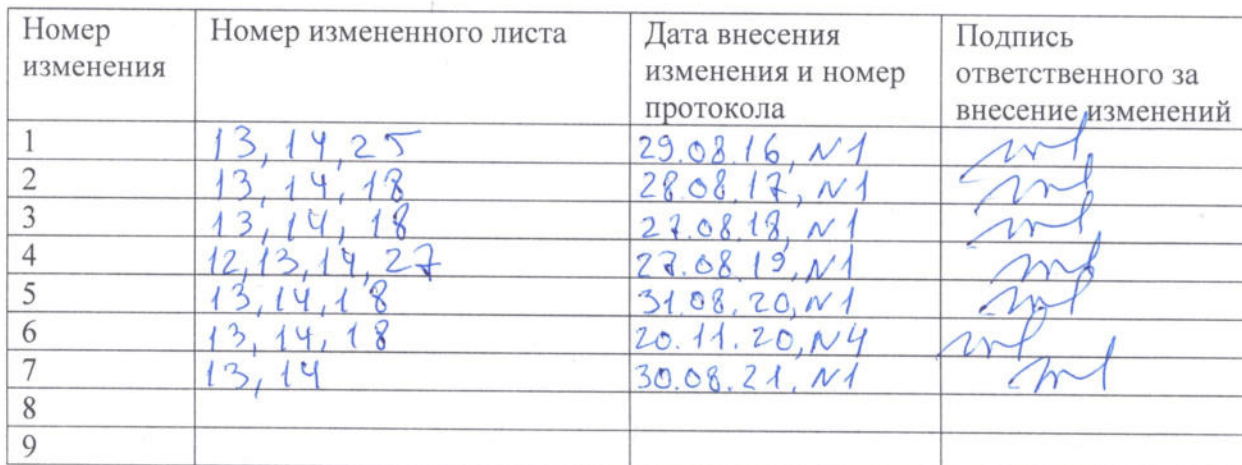 Номер изменения | Номер измененного листа | Дата внесения изменения и номер протокола | Подпись ответственного за внесение изменений
1 | 13, 14, 25 | 29.08.16, N1
2 | 13, 14, 18 | 28.08.17, N1
3 | 13, 14, 18 | 27.08.18, N1
4 | 12, 13, 14, 27 | 27.08.19, N1
5 | 13, 14, 18 | 31.08.20, N1
6 | 13, 14, 18 | 20.11.20, N4
7 | 13, 14 | 30.08.21, N1
8
9